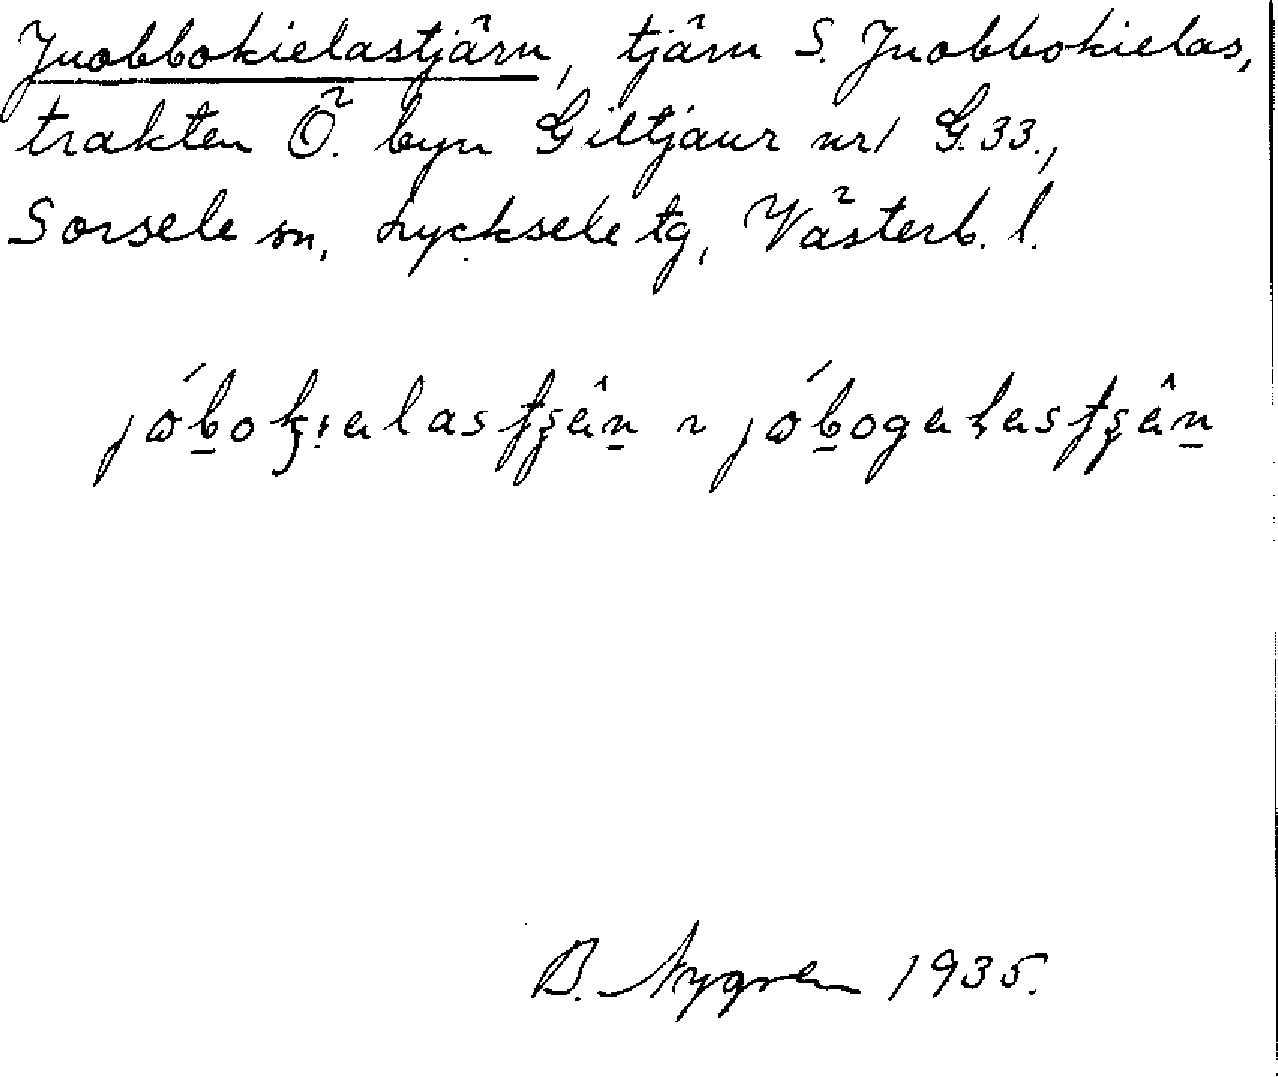 Juobbokielastjärn, tjärn S. Juobbokielas,
trakten Ö. byn Giltjaur nr 1 G. 33.,
Sorsele sn, Lycksele tg, Västerb. l.
B. Nygren 1935.